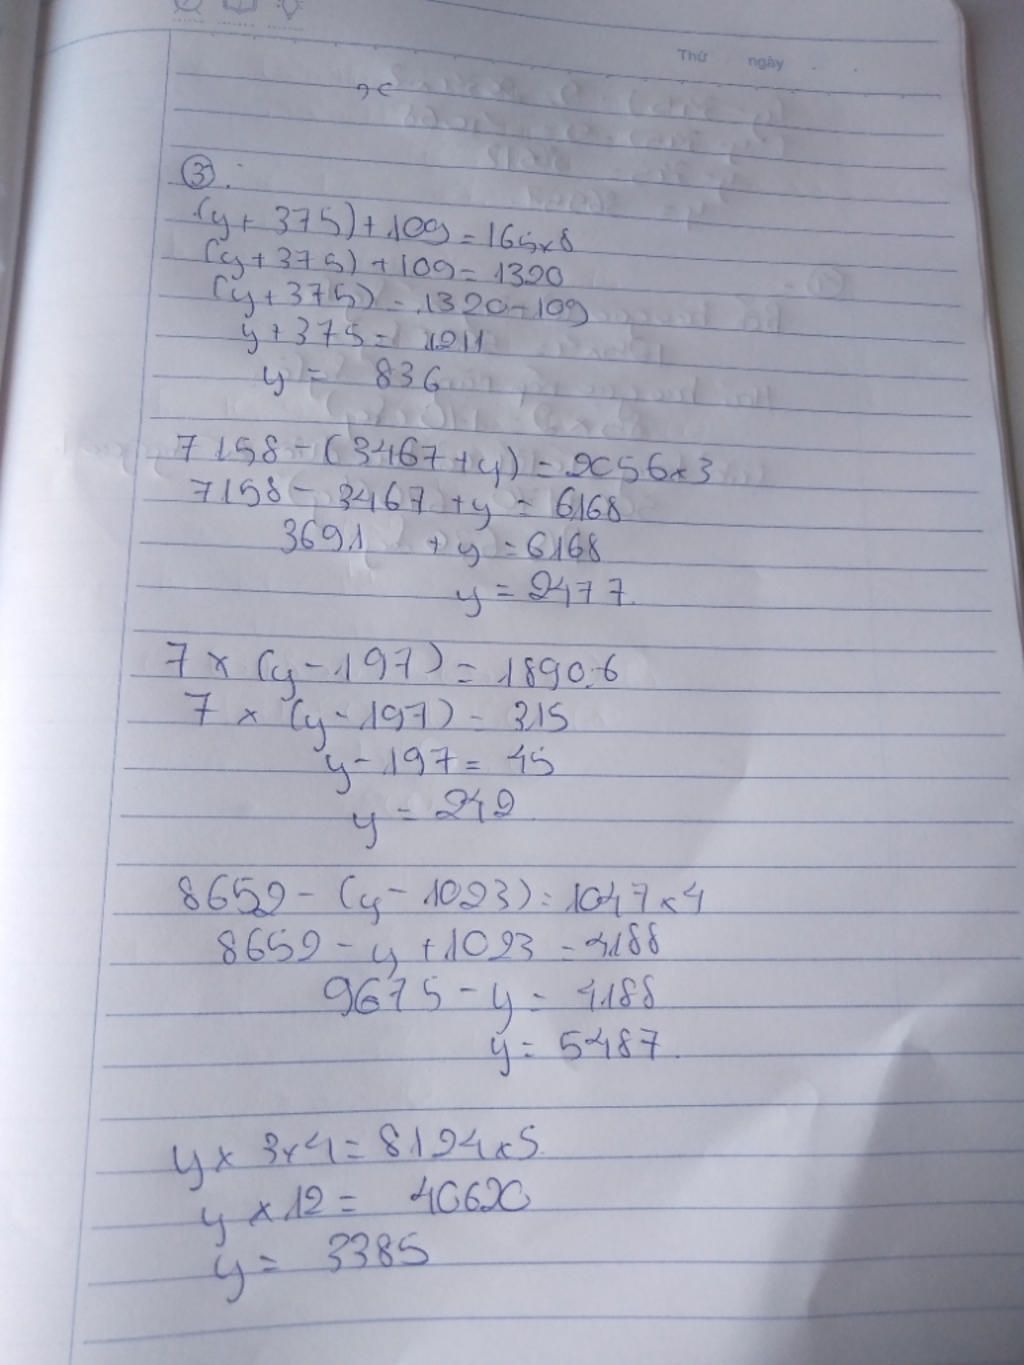 Thứ ngày
③:
(y + 375) + 109 = 165 x 8
(y + 375) + 109 = 1320
(y + 375) = 1320 - 109
y + 375 = 1211
y = 836
7158 - (3467 + y) = 2056 x 3
7158 - 3467 + y = 6168
3691 + y = 6168
y = 2477
7 x (y - 197) = 1890 : 6
7 x (y - 197) = 315
y - 197 = 45
y = 242
8652 - (y - 1023) = 1047 x 4
8652 - y + 1023 = 4188
9675 - y = 4188
y = 5487
y x 3 x 4 = 8124 x 5
y x 12 = 40620
y = 3385